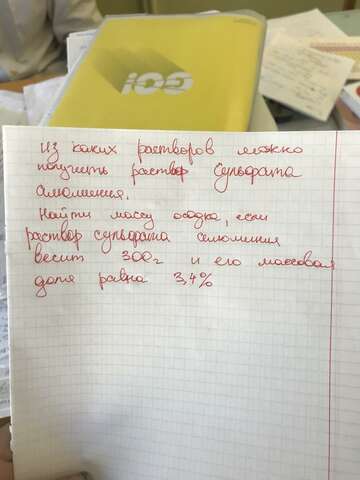 Из каких растворов можно
получить раствор сульфата
алюминия.
Найти массу осадка, если
раствор сульфата алюминия
весит 300г и его массовая
доля равна 3,4%